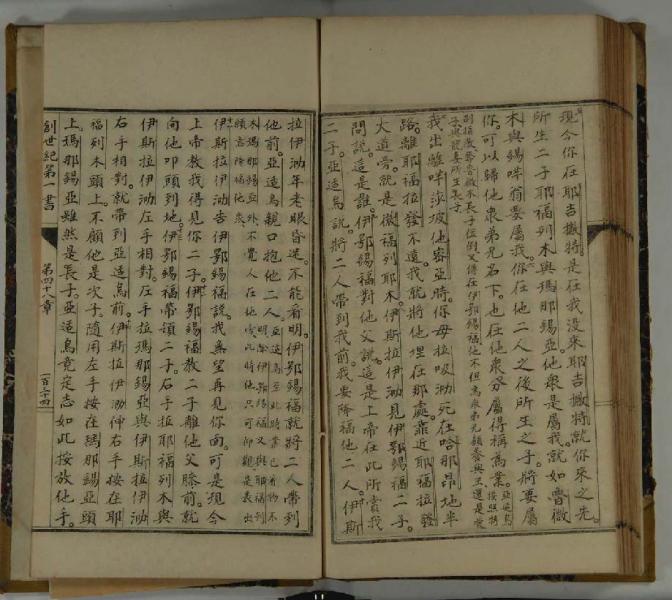 現今你在耶吉撇特。是在我没來耶吉撇特就你來之先。
所生二子耶福列木與瑪那錫亞他衆是屬我。就如魯微
木與錫咩翁要屬我。你在他二人之後所生之子。將要屬
你。可以歸他衆弟兄名下。也在他衆分屬得稱爲業。
我出離咩莎坡他密亞時。你母拉吸泐死在哈那昂地半
路。離耶福拉發不遠。我就將他埋在那處靠近耶福拉發
大道旁。就是微福列耶木。伊斯拉伊泐見伊鄂錫福二子。
問說。這是誰。伊鄂錫福對他父說。這是上帝在此所賞我
二子。亞适烏說。將二人帶到我前。我要降福他二人。伊斯
拉伊泐年老眼昏迷。不能看明。伊鄂錫福就將二人帶到
他前。亞适烏親口抱他二人。
伊斯拉伊泐告伊鄂錫福說。我無望再見你面。可是現今
上帝教我得見你二子。伊鄂錫福教二子離他父膝前。就
向他叩頭到地。伊鄂錫福帶領二子。右手拉耶福列木與
伊斯拉伊泐左手相對。左手拉瑪那錫亞與伊斯拉伊泐
右手相對。就帶到亞适烏前。伊斯拉伊泐伸右手按在耶
福列木頭上。不顧他是次子。隨用左手按在瑪那錫亞頭
上。瑪那錫亞雖然是長子。亞适烏竟定志如此按放他手。
創世紀第一書
第四十八章
一百三十四